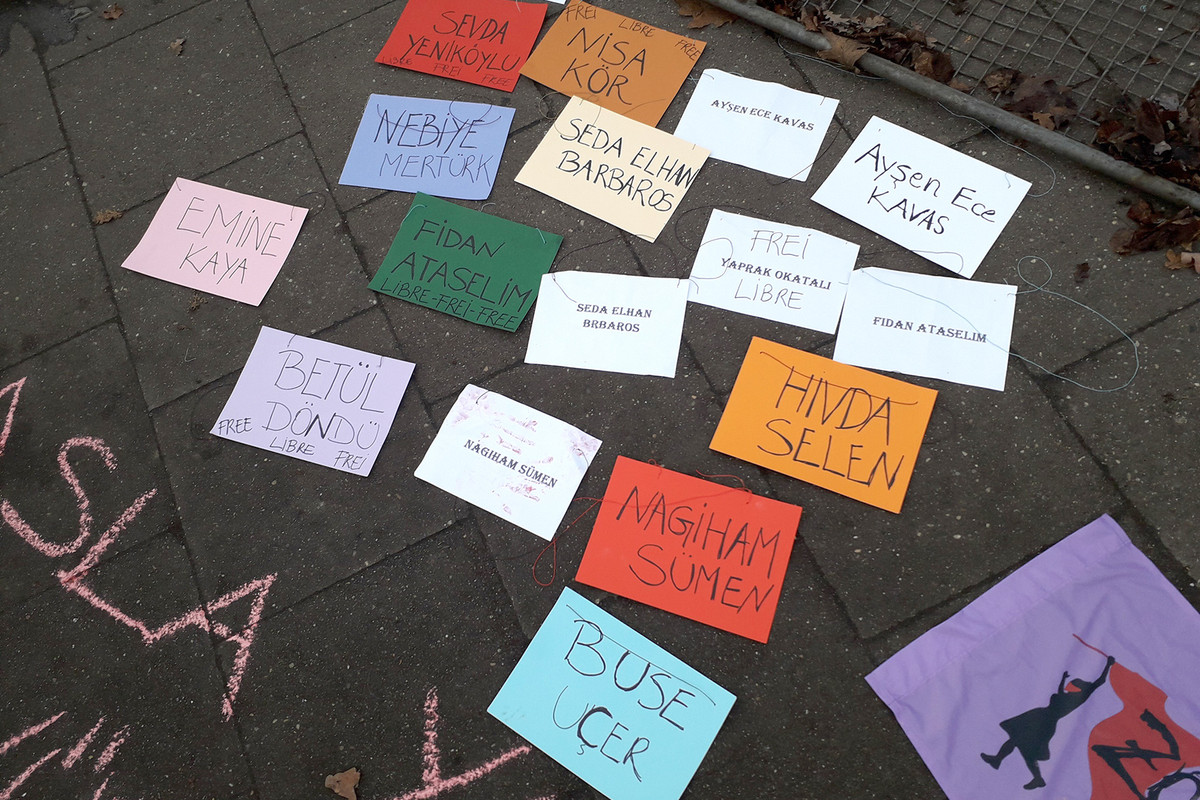 SEVDA
YENİKÖYLÜ
LIBRE FREI FREE
FREI LIBRE FREE
NİSA
KÖR
AYŞEN ECE KAVAS
NEBİYE
MERTÜRK
SEDA ELHAN
BARBAROS
Ayşen Ece
KAVAS
EMİNE
KAYA
FİDAN
ATASELİM
LIBRE-FREI-FREE
FREI
YAPRAK OKATALI
LIBRE
SEDA ELHAN
BRBAROS
FIDAN ATASELIM
BETÜL
DÖNDÜ
FREE LIBRE FREI
HIVDA
SELEN
NAGIHAM SÜMEN
NAGIHAM
SÜMEN
BUSE
UÇER